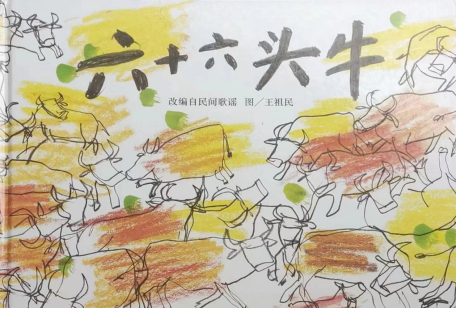 六十六头牛
改编自民间歌谣 图／王祖民